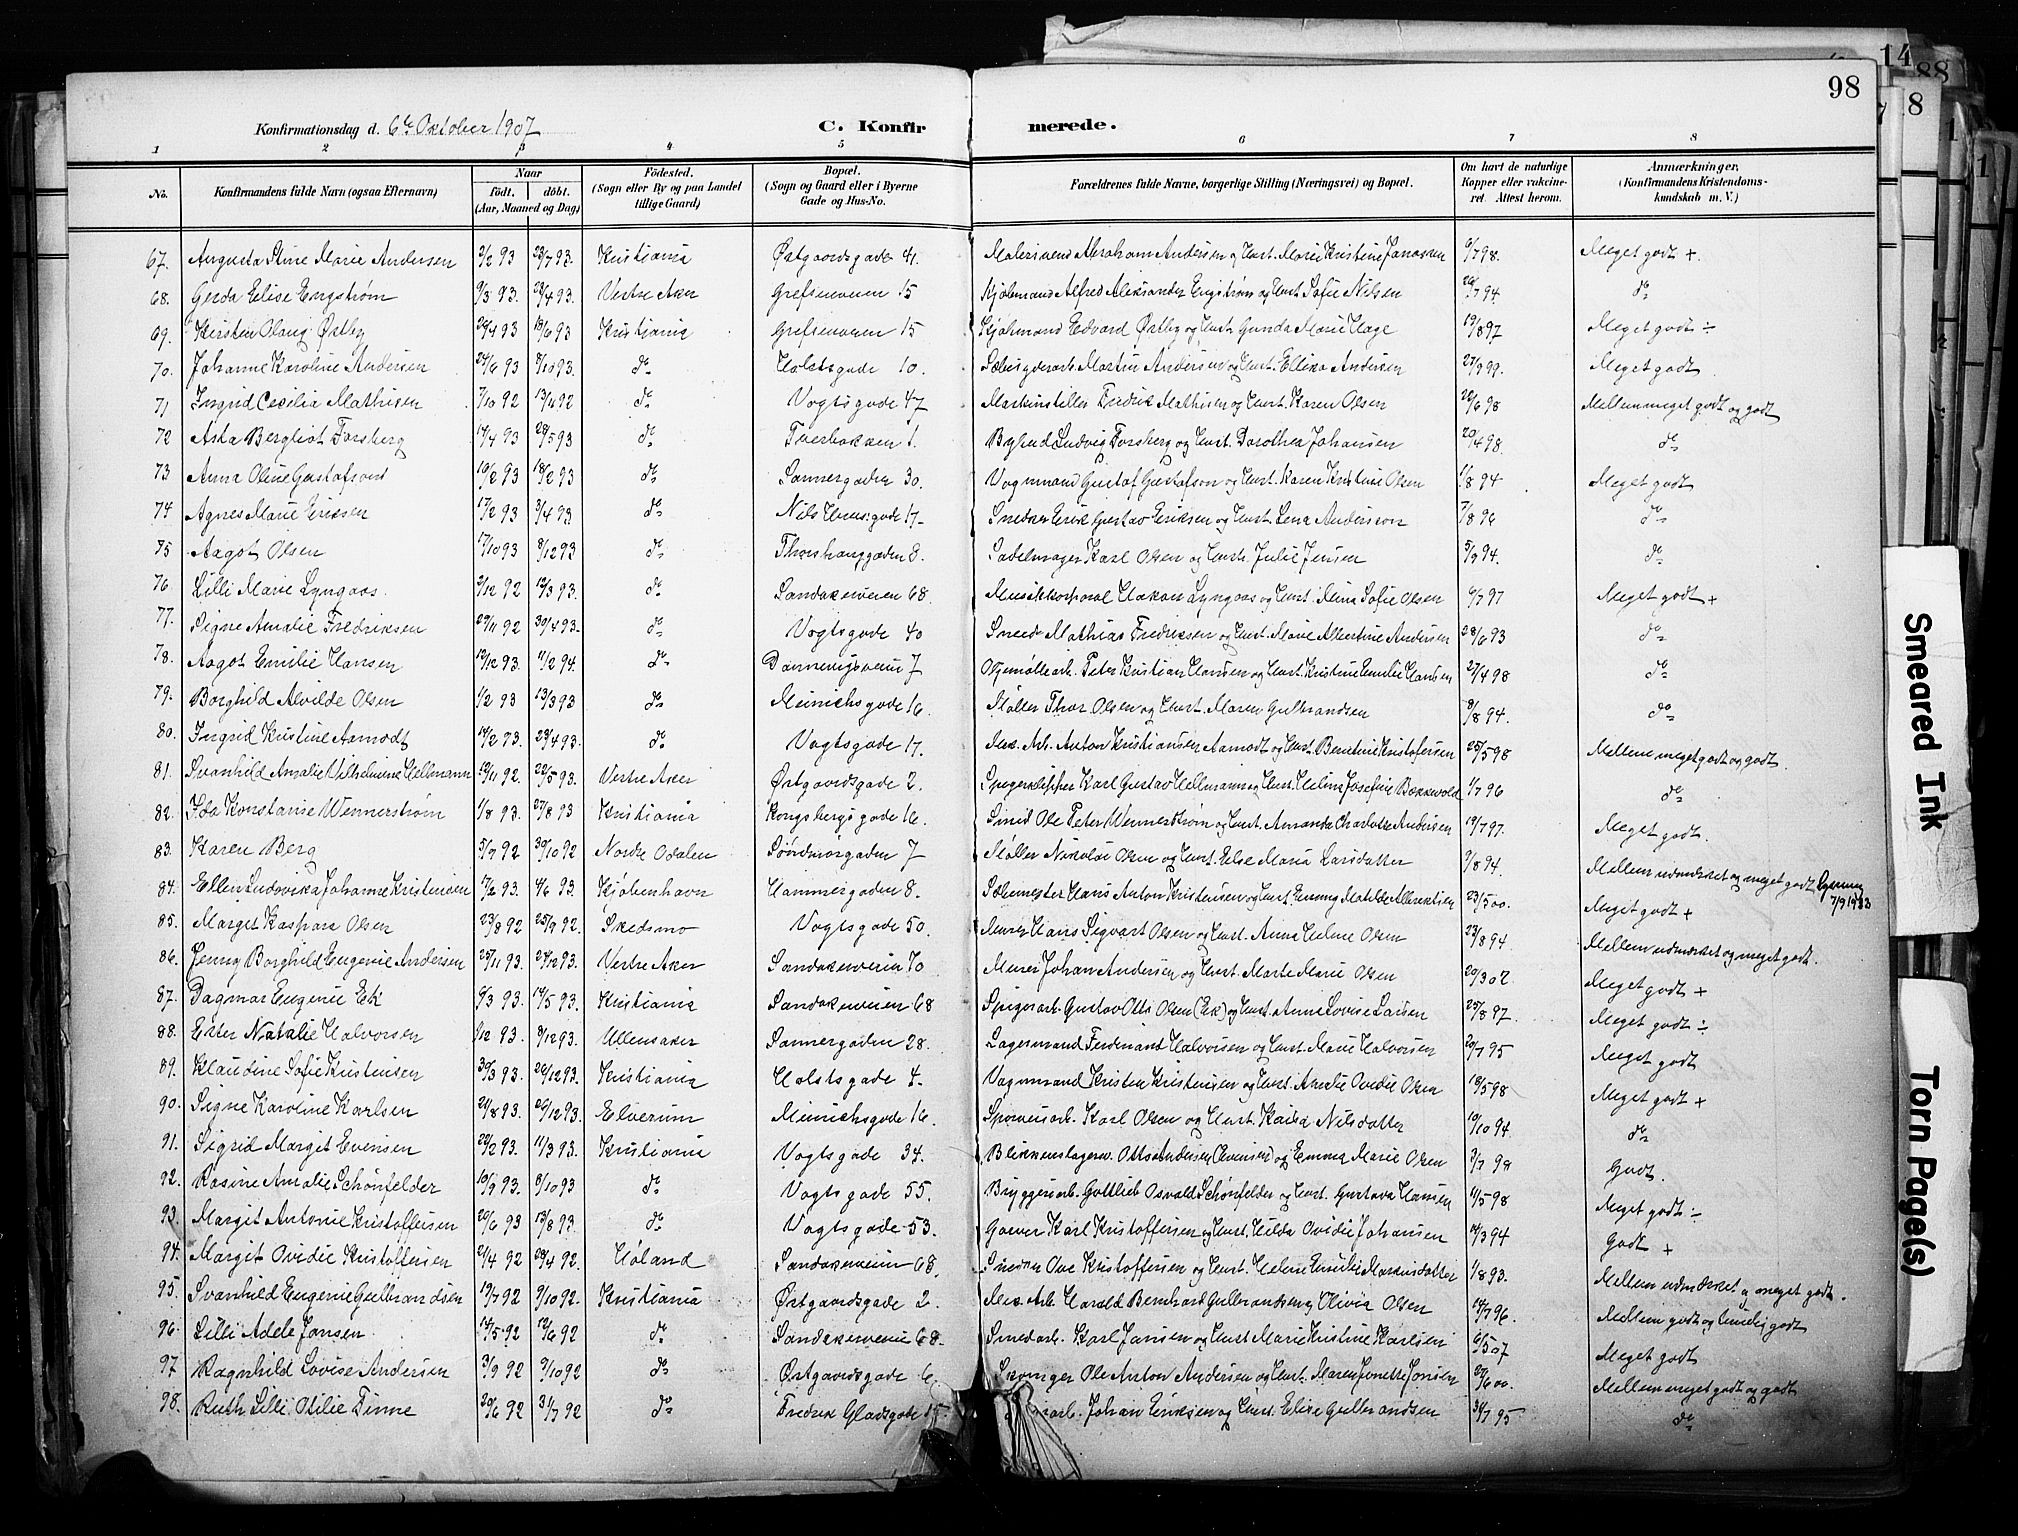 98
Konfirmationsdag d. 6te Oktober 1907 C. Konfirmerede.
1 2 3 4 5 6 7 8
No. Konfirmandens fulde Navn (ogsaa Efternavn) Naar født. døbt. (Aar, Maaned og Dag) Fødested. (Sogn eller By og paa Landet tillige Gaard) Bopæl. (Sogn og Gaard eller i Byerne Gade og Hus-No. Forældrenes fulde Navne, borgerlige Stilling (Næringsvei) og Bopæl. Om havt de naturlige Kopper eller vakcineret. Attest herom. Anmærkninger. (Konfirmandens Kristendomskundskab m. V.)
67. Augusta Stine Marie Andersen 2/2 93 23/7 93. Kristiania Østgaardsgade 41. Malersvend Abraham Andersen og Hust. Marie Kristine Jonassen 6/7 98. Meget godt +.
68. Gerda Elise Engstrøm 9/3 93. 23/4 93. Vestre Aker Grefsenveien 15 Kjøbmand Alfred Aleksander Engstrøm og Hust. Sofie Nilsen 20/7 94 do
69. Kirsten Olaug Østby 20/4 93 18/6 93 Kristiania Grefsenveien 15 Kjøbmand Edvard Østby og Hust. Gunda Marie Hage 19/8 97 Meget godt ÷
70. Johanne Karoline Andersen 24/6 93 8/10 93. do Holstsgade 10. Martin Andersen og Hust. Ellika Andersen 27/9 99. Meget godt.
71 Ingrid Cecilia Mathisen 7/10 92 13/11 92 do Vogtsgade 47 Maskinstiller Fredrik Mathisen og Hust. Karen Olsen 20/6 98 Mellem meget godt og godt
72 Asta Bergliot Forsberg 14/4 93 28/5 93 do Tverbakken 1. Bybud Ludvig Forsberg og Hust. Dorothea Johansen 20/4 98. do
73 Anna Oline Gustafson 10/2 93 18/2 93 do Sannergaden 30. Vognmand Gustaf Gustafson og Hust. Karen Kristine Olsen 1/8 94 Meget godt
74 Agnes Marie Eriksen 17/2 93 3/4 93 do Nils Huusgade 17 Snedker Erik Gustav Eriksen og Hust. Lena Anderson 7/8 96 do
75 Aagot Olsen 17/10 93 8/12 93 do Thorshauggaden 8. Sadelmager Karl Olsen og Hust. Julie Jensen 5/9 94. do
76. Lilli Marie Lyngaas. 2/12 92 12/3 93. do Sandakerveien 68. Musikkorporal Haakon Lyngaas og Hust. Alma Sofie Olsen 6/7 97 Meget godt +
77. Signe Amalie Fredriksen 29/11 92 30/4 93. do Vogtsgade 40 Mathias Fredriksen og Hust. Marie Albertine Andersen 28/6 93 do
78. Aagot Emilie Hansen 12/12 93. 11/2 94 do Dannevigsveien 7 Oljemøllearb. Peter Kristian Hansen og Hust. Kristine Emilie Hansen 27/4 98 do
79. Borghild Alvilde Olsen 1/2 93 13/3 93 do Meinichsgade 16. Møller Thor Olsen og Hust. Maren Gulbrandsen 8/8 94. do
80. Ingrid Kristine Aamodt 14/2 93. 23/4 93. do Vogtsgade 17. Mek. Arb. Anton Kristiansen Aamodt og Hust. Berntine Kristofersen 25/5 98 Mellem meget godt og godt.
81. Svanhild Amalie Vilhelmine Hellmann 12/11 92. 22/5 93. Vestre Aker Østgaardsgade 2. Karl Gustav Hellmann og Hust. Helene Josefine Bækkevold 1/7 96 do
82. Ida Konstanse Wennerstrøm 1/8 93. 27/8 93 Kristiania Kongsbergsgade 16. Smed Ole Peter Wennerstrøm og Hust. Amanda Charlotte Andersen 19/7 97. Meget godt.
83. Karen Berg 5/7 92 30/10 92 Nordre Odalen Søndmørgaden 7 Møller Nikolai Olsen og Hust. Else Maria Larsdatter 9/8 94. Mellem udmærket og meget godt
84. Ellen Ludovika Johanne Kristensen 17/2 93. 4/6 93. Kjøbenhavn Hammergaden 8. Hans Anton Kristensen og Hust. Emmy Matilde Albrektsen 23/5 00. Meget godt + 7/9 1983
85. Margit Kaspara Olsen 23/8 92 25/9 92. Skedsmo Vogtsgade 50. Murer Hans Sigvart Olsen og Hust. Anna Helene Olsen 23/8 94. Mellem udmærket og meget godt.
86. Jenny Borghild Eugenie Andersen 25/11 93. 24/12 93. Vestre Aker Sandakerveien 70 Murer Johan Andersen og Hust. Marte Marie Olsen 20/3 02. Meget godt +
87. Dagmar Eugenie Ek 6/3 93. 14/5 93. Kristiania Sandakerveien 68 Spigerarb. Gustav Otto Olsen (Ek) og Hust. Anne Lovise Larsen 25/8 97. Meget godt ÷
88. Ester Natalie Halvorsen 1/12 93. 9/12 93. Ullensaker Sannergaden 28. Lagermand Ferdinand Halvorsen og Hust. Marie Halvorsen 20/7 95 Meget godt
89. Klaudine Sofie Kristensen 30/3 93. 26/12 93. Kristiania Holstsgade 4. Vognmand Kristen Kristensen og Hust. Amalie Ovidie Olsen 18/5 98 Meget godt +
90. Signe Karoline Karlsen 21/8 93. 26/12 93. Elverum Meinichsgade 16. Karl Olsen og Hust. Kaisa Nilsdatter 10/10 94. do
91. Sigrid Margit Evensen 20/2 93. 11/3 93. Kristiania Vogtsgade 34. Blikkenslagersv. Otto Andersen Evensen og Emma Marie Olsen 2/7 98 Godt.
92. Rasine Amalie Schønfelder 10/9 93. 8/10 93 do Vogtsgade 55. Bryggeriarb. Gottlieb Osvald Schønfelder og Hust. Gustava Hansen 11/5 98 Meget godt ÷
93. Margit Antonie Kristoffersen 20/6 93 13/8 93. do Vogtsgade 53. Garver Karl Kristoffersen og Hust. Hilda Ovidie Johansen 14/3 94 Godt +
94. Margit Ovidie Kristoffersen 21/4 92 28/4 92. Høland Sandakerveien 68. Snedker Ove Kristoffersen og Hust. Helene Emilie Markusdatter 1/8 93. Mellem udmærket og meget godt.
95. Svanhild Eugenie Gulbrandsen 19/7 92 9/10 92. Kristiania Østgaardsgade 2. Mek. Arb. Harald Bernhart Gulbrandsen og Olivia Olsen 14/7 96. Mellem godt og temlig godt
96. Lilli Adele Jansen. 15/5 92 12/6 92 do Sandakerveien 68. Smedarb. Karl Jansen og Hust. Marie Kristine Karlsen 6/5 07 Meget godt
97 Ragnhild Lovise Andersen 3/9 92 9/10 92 do Østgaardsgade 6. Ole Anton Andersen og Hust. Maren Jonette Jonsen 20/6 00. Mellem meget godt og godt
98. Ruth Lilli Otilie Finne 20/6 92 31/7 92 do Fredrik Gladsgade 15. Johan Eriksen og Hust. Elise Gulbrandsen 30/7 95 do
14
88
8
Smeared Ink
Torn Page(s)